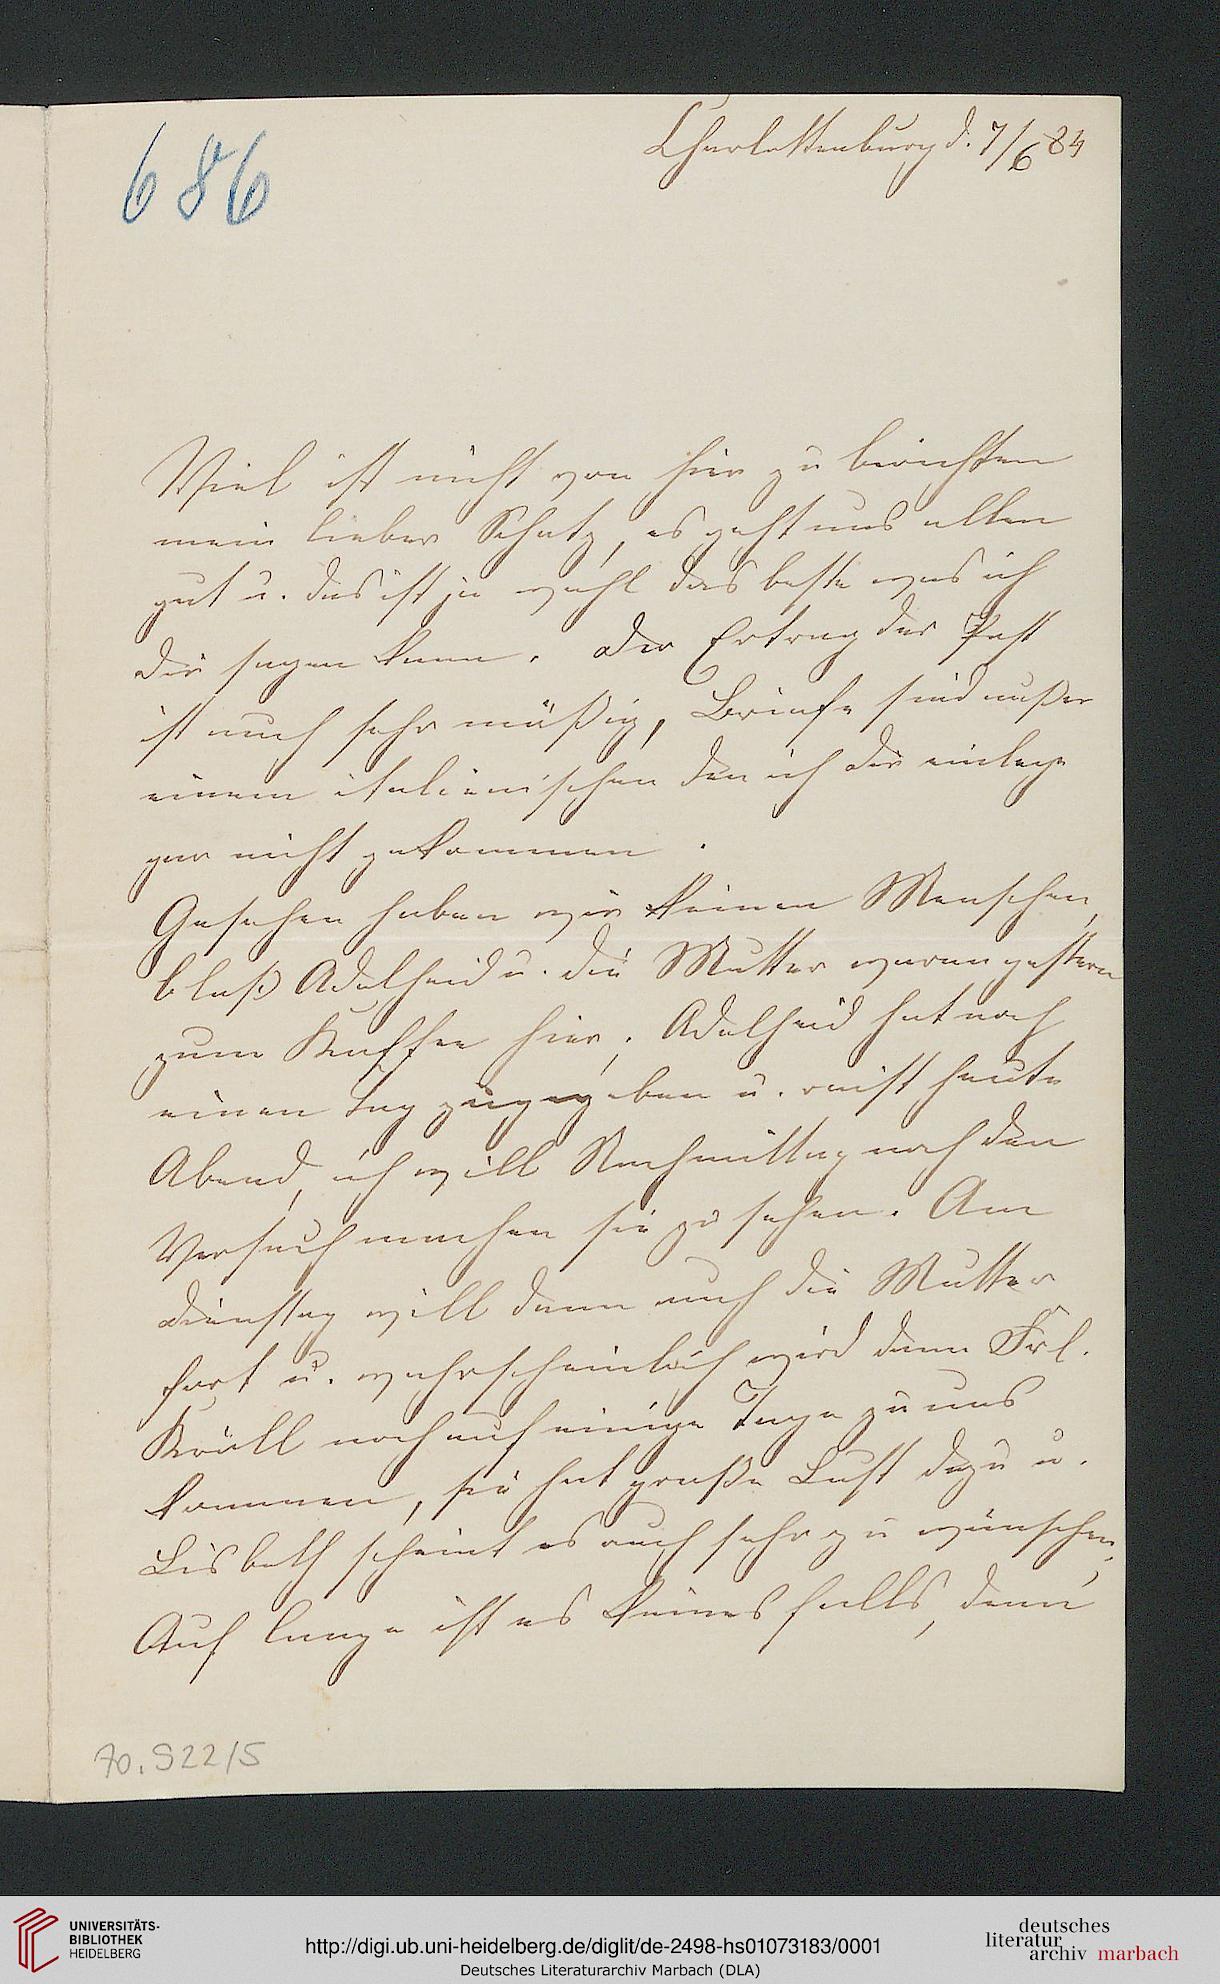 686
Charlottenburg d. 7/6 84
Viel ist nicht von hier zu berichten
mein lieber Schatz, es geht uns allen
gut u. das ist ja wohl das beste was ich
Dir sagen kann. Der Ertrag der Post
ist auch sehr mäßig, Briefe sind außer
einem italienischen den ich Dir einlege
gar nicht gekommen.
Gesehen haben wir keinen Menschen,
bloß Adelheid u. die Mutter waren gestern
zum Kaffee hier. Adelheid hat noch
einen Tag zugegeben u. reist heute
Abend, ich will Nachmittag noch den
Versuch machen sie zu sehen. Am
Dienstag will dann auch die Mutter
fort u. wahrscheinlich wird dann Frl.
Kröll noch auf einige Tage zu uns
kommen, sie hat große Lust dazu u.
Lisbeth scheint es auch sehr zu wünschen,
Auf lange ist es keinesfalls, denn
70.922/5
UNIVERSITÄTS-
BIBLIOTHEK
HEIDELBERG
http://digi.ub.uni-heidelberg.de/diglit/de-2498-hs01073183/0001
Deutsches Literaturarchiv Marbach (DLA)
deutsches
literatur
archiv marbach